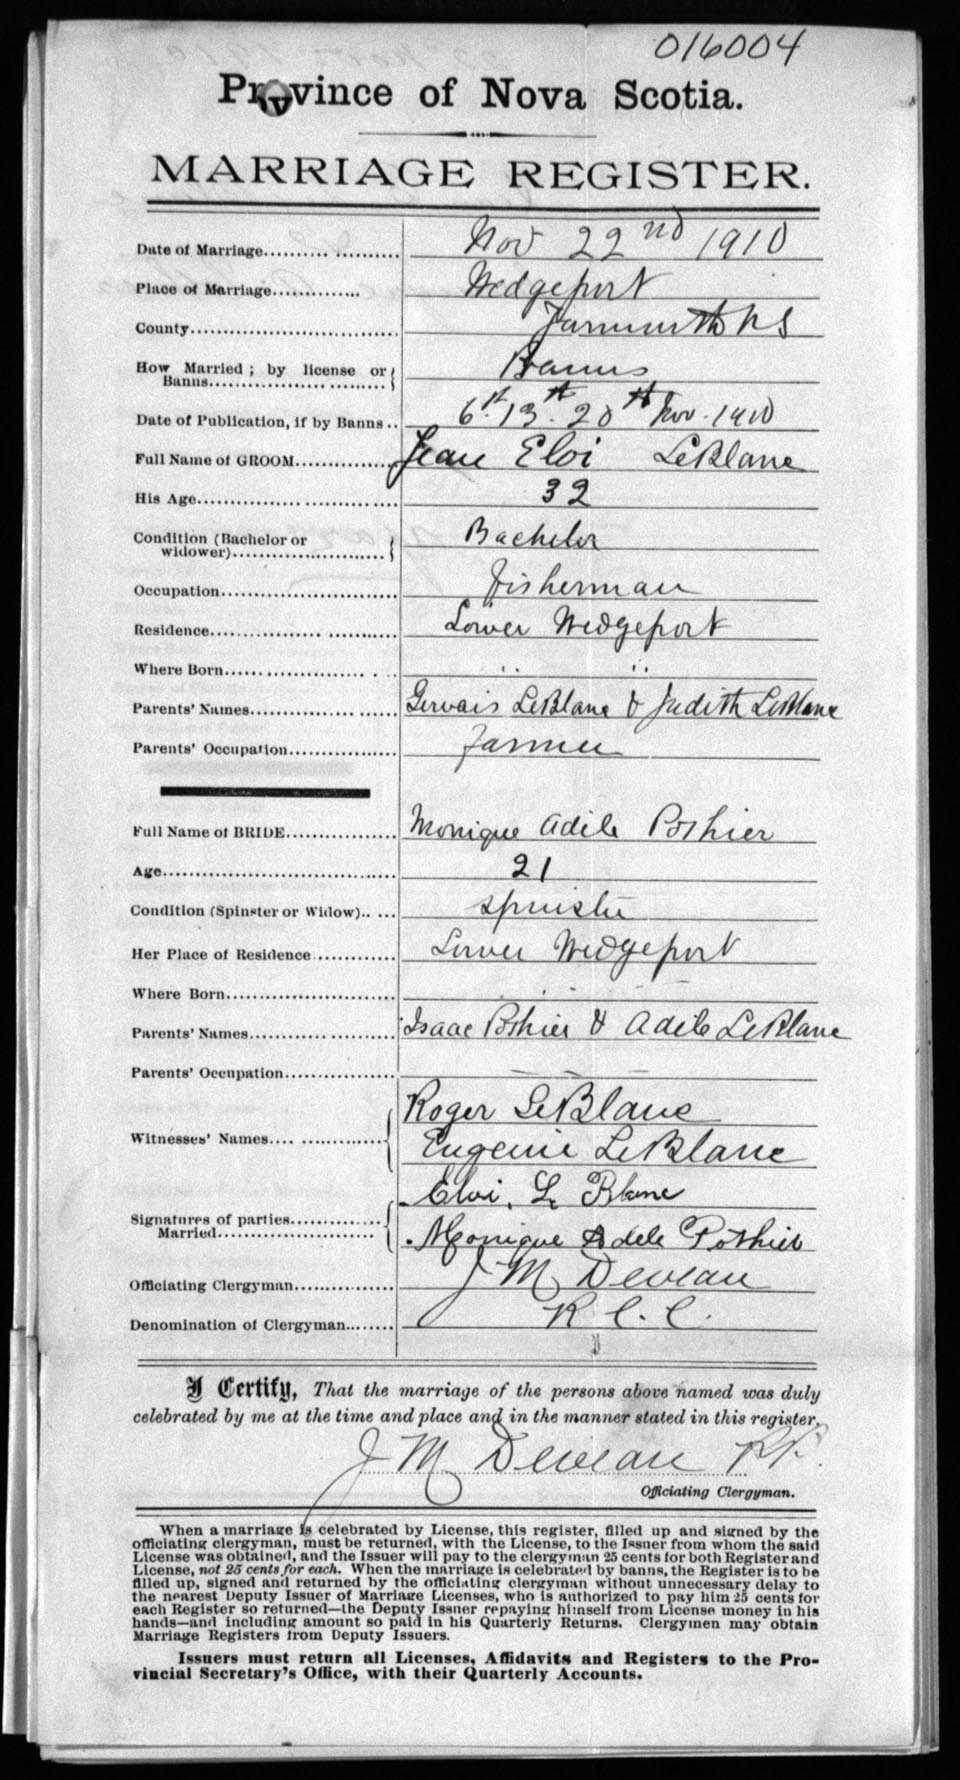 016004
Province of Nova Scotia.
MARRIAGE REGISTER.
Date of Marriage.................... Nov 22nd 1910
Place of Marriage.............. Wedgeport
County.................................. Yarmouth N S
How Married ; by license or Banns.................... Banns
Date of Publication, if by Banns .. 6th. 13th. 20th Nov. 1910
Full Name of GROOM................ Jean Eloi LeBlanc
His Age................................. 32
Condition (Bachelor or widower)......................... Bachelor
Occupation............................. Fisherman
Residence.............................. Lower Wedgeport
Where Born............................ " "
Parents' Names....................... Gervais LeBlanc & Judith LeBlanc
Parents' Occupation.................. Farmer
Full Name of BRIDE.................. Monique Adile Pothier
Age...................................... 21
Condition (Spinster or Widow)...... spinster
Her Place of Residence.............. Lower Wedgeport
Where Born............................ " "
Parents' Names....................... Isaac Pothier & Adile LeBlanc
Parents' Occupation.................. — — —
Witnesses' Names.... .............. Roger LeBlanc
Eugenie LeBlanc
Signatures of parties Married......................... Eloi. Le Blanc
Monique Adele Pothier
Officiating Clergyman................ J M Deveau
Denomination of Clergyman........ R C. C.
I Certify, That the marriage of the persons above named was duly
celebrated by me at the time and place and in the manner stated in this register.
J M Deveau P.P.
Officiating Clergyman.
When a marriage is celebrated by License, this register, filled up and signed by the
officiating clergyman, must be returned, with the License, to the Issuer from whom the said
License was obtained, and the Issuer will pay to the clergyman 25 cents for both Register and
License, not 25 cents for each. When the marriage is celebrated by banns, the Register is to be
filled up, signed and returned by the officiating clergyman without unnecessary delay to
the nearest Deputy Issuer of Marriage Licenses, who is authorized to pay him 25 cents for
each Register so returned—the Deputy Issuer repaying himself from License money in his
hands—and including amount so paid in his Quarterly Returns. Clergymen may obtain
Marriage Registers from Deputy Issuers.
Issuers must return all Licenses, Affidavits and Registers to the Pro-
vincial Secretary's Office, with their Quarterly Accounts.